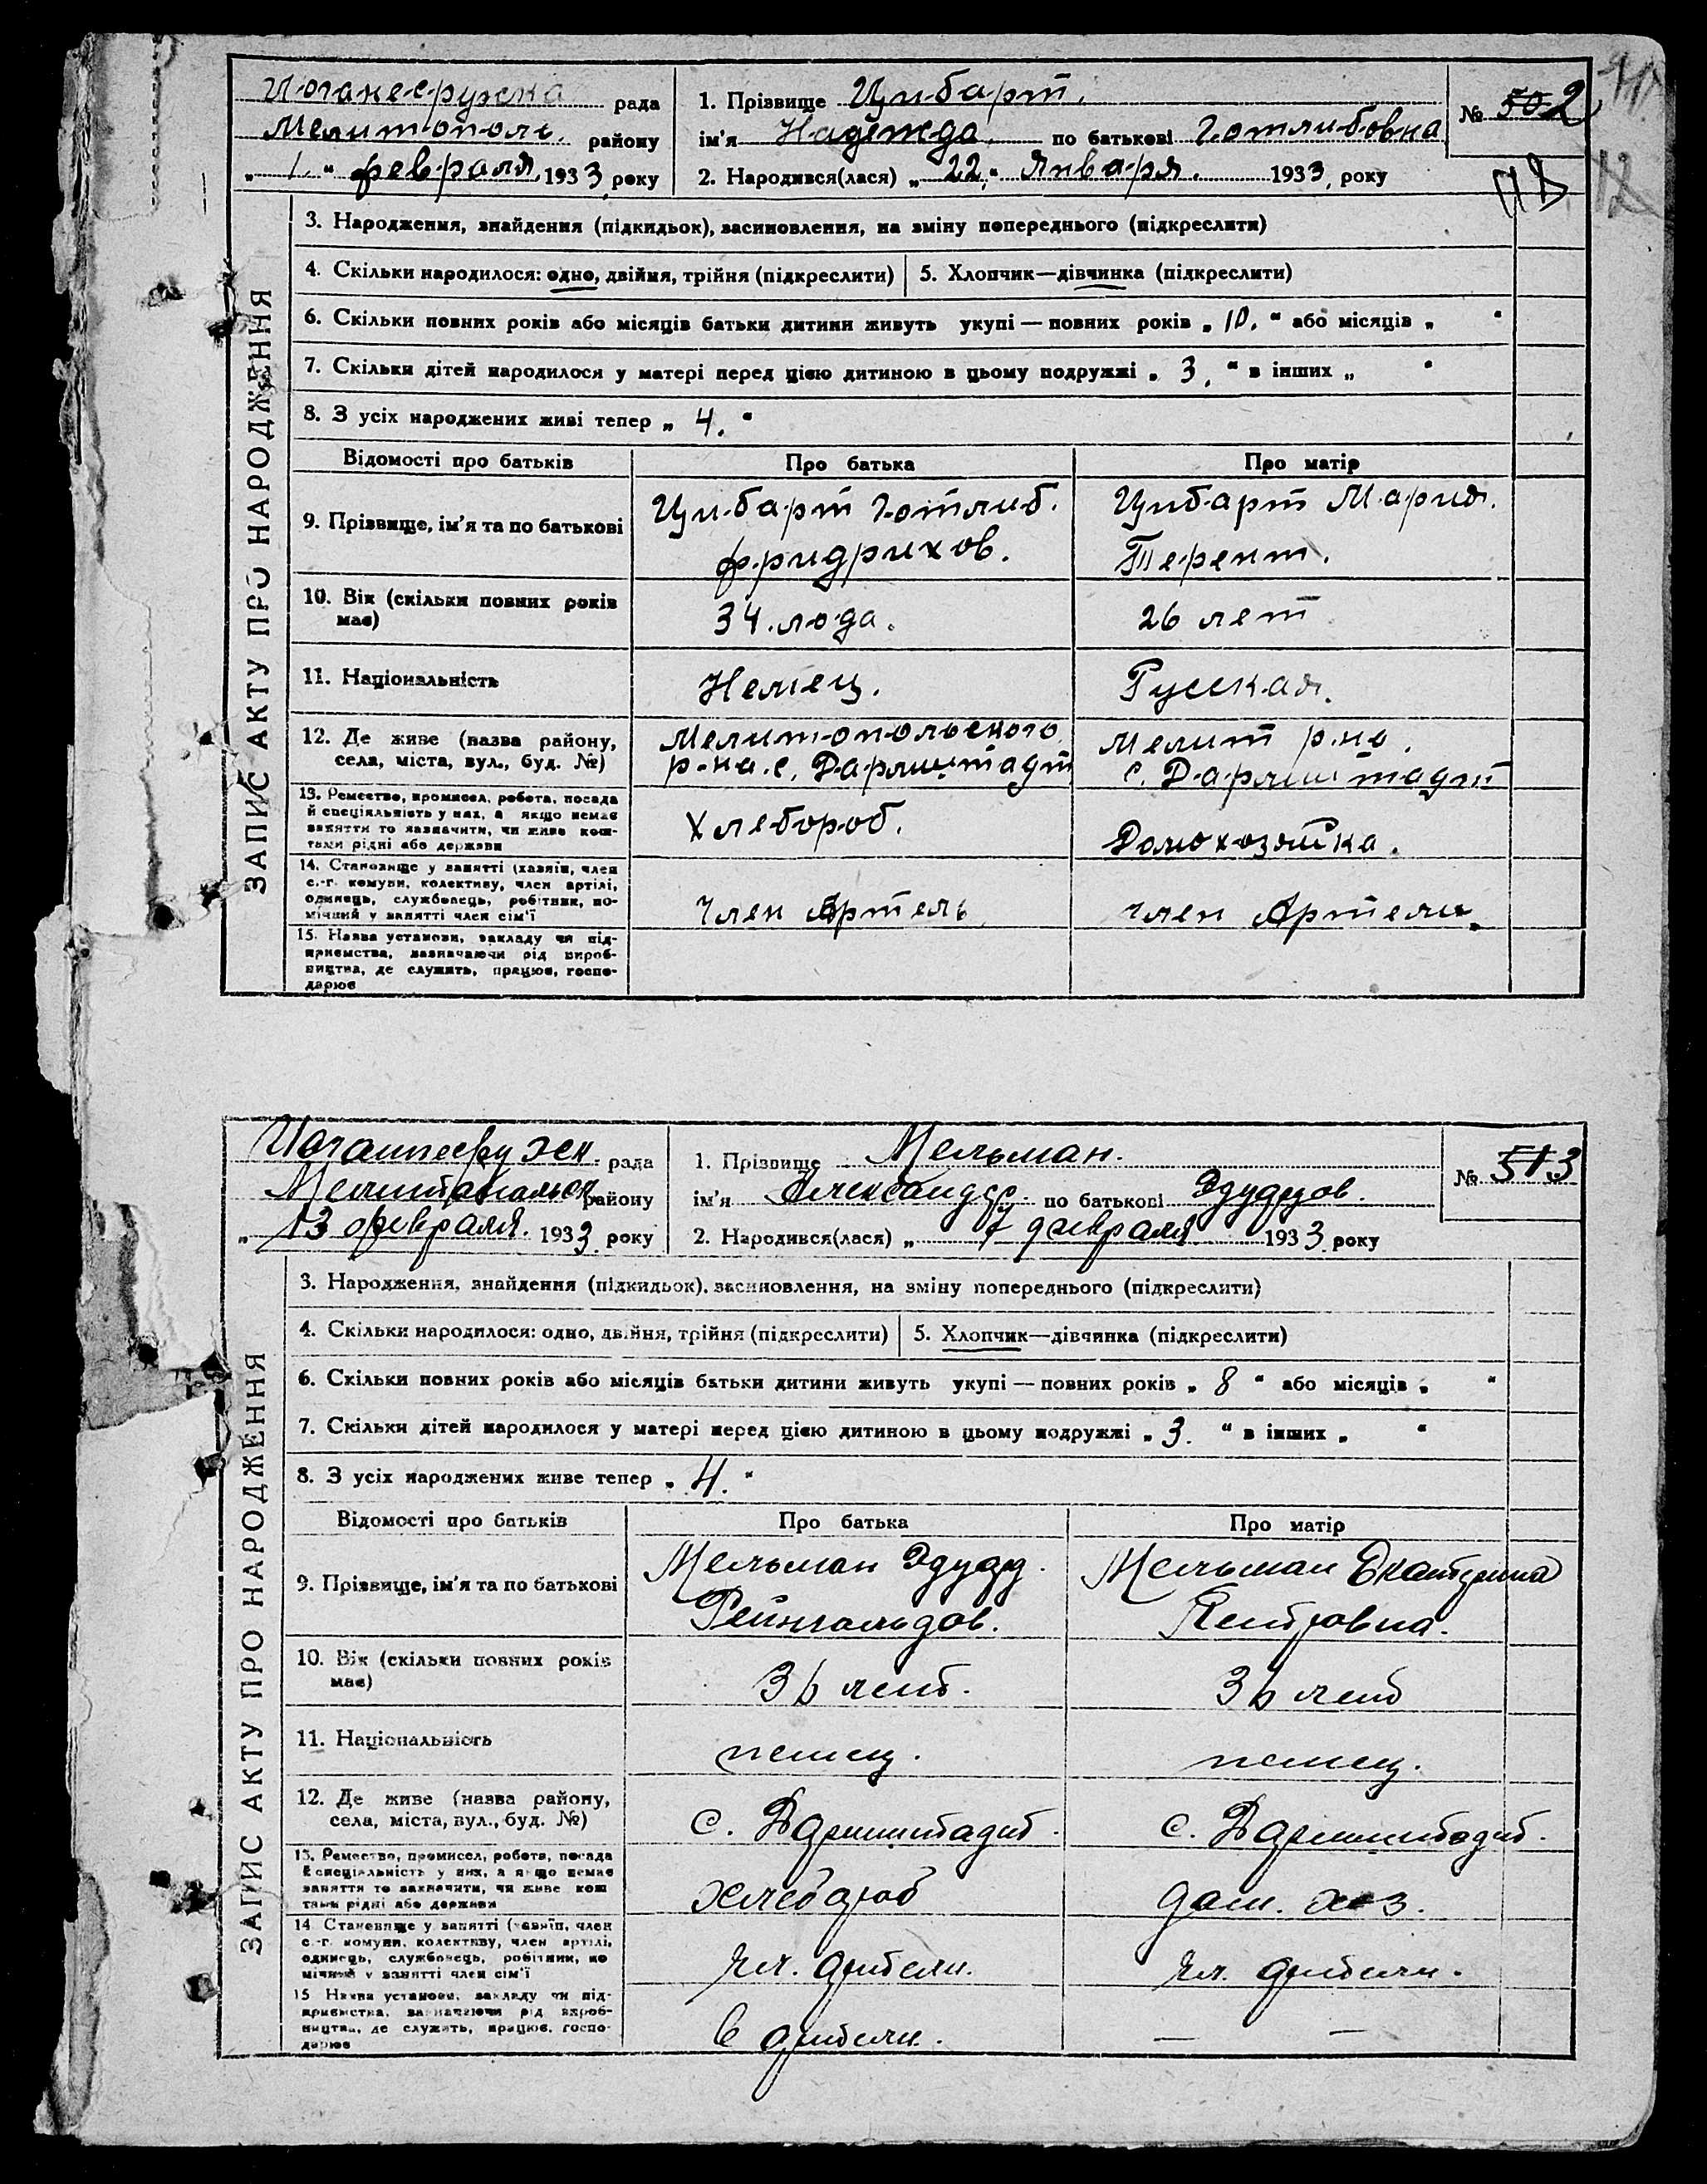 Иоганесружска рада
Мелитополь району
„ 1. “ февраля 1933 року
1. Прізвище Цибарт.
ім'я Надежда по батькові Готлибовна
2. Народився(лася) „ 22. “ Января. 1933, року
№ 502
12
ЗАПИС АКТУ ПРО НАРОДЖЕННЯ
3. Народження, знайдення (підкидьок), засиновлення, на зміну попереднього (підкреслити)
4. Скільки народилося: одно, двійня, трійня (підкреслити) 5. Хлопчик—дівчинка (підкреслити)
6. Скільки повних років або місяців батьки дитини живуть укупі — повних років „ 10. “ або місяців „ “
7. Скільки дітей народилося у матері перед цією дитиною в цьому подружжі „ 3. “ в інших „ “
8. З усіх народжених живі тепер „ 4. “
Відомості про батьків Про батька Про матір
9. Прізвище, ім'я та по батькові
Цибарт Готлиб.
фридрихов.
Цибарт Мария.
Терент.
10. Вік (скільки повних років
має)
34. года.
26 лет
11. Національність
Немец.
Русская.
12. Де живе (назва району,
села, міста, вул., буд. №)
Мелитопольского
р-на. с. Дармштадт
Мелит р-на.
с. Дармштадт
13. Ремество, промисел, робота, посада
й спеціяльність у них, а якщо немає
заняття то зазначити, чи живе кош-
тами рідні або держави
Хлебороб.
Домохозяйка.
14. Становище у занятті (хазяїн, член
с.-г. комуни, колективу, член артілі,
одинець, службовець, робітник, по-
мічний у занятті член сім'ї
Член Артель
член Артели.
15. Назва установи, закладу чи під-
приємства, зазначаючи рід вироб-
ництва, де служить, працює, госпо-
дарює
Иоганнесружск рада
Мелитопольск району
„ 13 февраля. 1933 року
1. Прізвище Мельман.
ім'я Александр по батькові Эдуардов.
2. Народився(лася) „ 7 февраля 1933 року
№ 513
ЗАПИС АКТУ ПРО НАРОДЖЕННЯ
3. Народження, знайдення (підкидьок), засиновлення, на зміну попереднього (підкреслити)
4. Скільки народилося: одно, двійня, трійня (підкреслити) 5. Хлопчик—дівчинка (підкреслити)
6. Скільки повних років або місяців батьки дитини живуть укупі — повних років „ 8 “ або місяців „ “
7. Скільки дітей народилося у матері перед цією дитиною в цьому подружжі „ 3. “ в інших „ “
8. З усіх народжених живе тепер „ 4. “
Відомості про батьків Про батька Про матір
9. Прізвище, ім'я та по батькові
Мельман Эдуард.
Рейнгольдов.
Мельман Екатерина
Петровна.
10. Вік (скільки повних років
має)
36 лет.
36 лет
11. Національність
немец.
немец.
12. Де живе (назва району,
села, міста, вул., буд. №)
с. Дармштадт.
с. Дармштадт.
13. Ремество, промисел, робота, посада
й спеціяльність у них, а якщо немає
заняття то зазначити, чи живе кош
тами рідні або держави
хлебороб
дом. хоз.
14 Становище у занятті (хазяїн, член
с.-г. комуни, колективу, член артілі,
одинець, службовець, робітник, по
мічний у занятті член сім'ї
чл. артели.
чл. артели.
15 Назва установи, закладу чи під-
приємства, зазначаючи рід вироб-
ництва, де служить, працює, госпо-
дарює
в артели.
— —